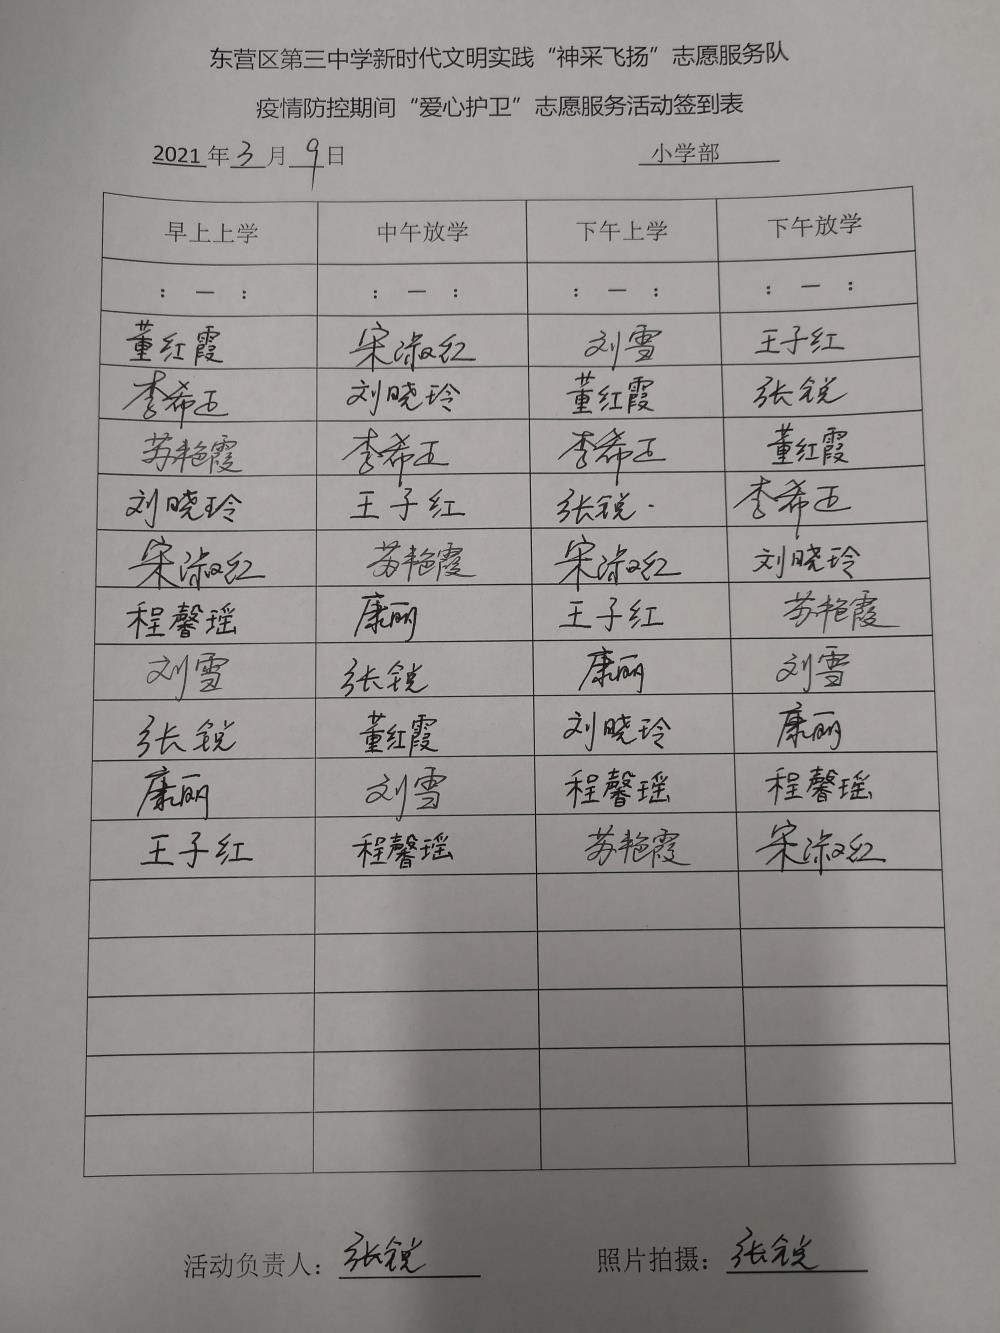 东营区第三中学新时代文明实践“神采飞扬”志愿服务队
疫情防控期间“爱心护卫”志愿服务活动签到表
2021年3月9日 小学部
早上上学 中午放学 下午上学 下午放学
: — : : — : : — : : — :
董红霞 宋淑红 刘雪 王子红
李希正 刘晓玲 董红霞 张锐
苏艳霞 李希正 李希正 董红霞
刘晓玲 王子红 张锐. 李希正
宋淑红 苏艳霞 宋淑红 刘晓玲
程馨瑶 康丽 王子红 苏艳霞
刘雪 张锐 康丽 刘雪
张锐 董红霞 刘晓玲 康丽
康丽 刘雪 程馨瑶 程馨瑶
王子红 程馨瑶 苏艳霞 宋淑红
活动负责人：张锐 照片拍摄：张锐